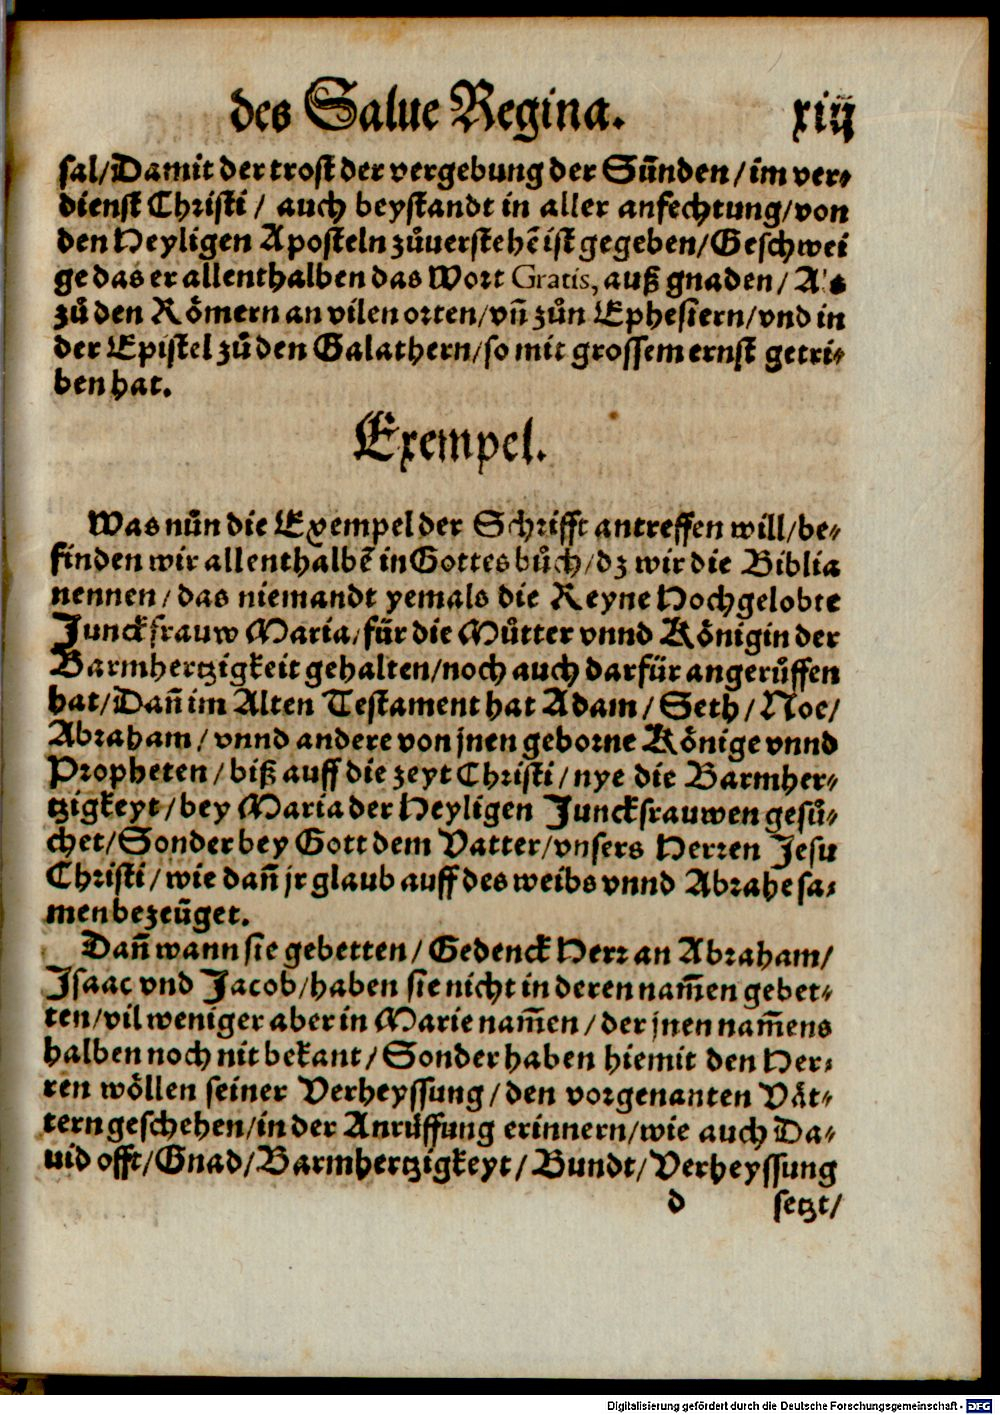 des Salue Regina. xiij
sal/Damit der trost der vergebung der Sünden/im ver-
dienst Christi/ auch beystandt in aller anfechtung/von
den Heyligen Aposteln zůuerstehẽ ist gegeben/Geschwei
ge das er allenthalben das Wort Gratis, auß gnaden/
zů den Römern an vilen orten/vñ zůn Ephesiern/vnd in
der Epistel zů den Galathern/so mit grossem ernst getri-
ben hat.
Exempel.
Was nůn die Exempel der Schrifft antreffen will/be-
finden wir allenthalbẽ in Gottes bůch/dz wir die Biblia
nennen/das niemandt yemals die Reyne Hochgelobte
Junckfrauw Maria/für die Můtter vnnd Königin der
Barmhertzigkeit gehalten/noch auch darfür angerůffen
hat/Dañ im Alten Testament hat Adam/Seth/Noe/
Abraham/vnnd andere von jnen geborne Könige vnnd
Propheten/biß auff die zeyt Christi/nye die Barmher-
tzigkeyt/bey Maria der Heyligen Junckfrauwen gesů-
chet/Sonder bey Gott dem Vatter/vnsers Herren Jesu
Christi/wie dañ jr glaub auff des weibs vnnd Abrahe sa-
men bezeüget.
Dañ wann sie gebetten/Gedenck Herr an Abraham/
Isaac vnd Jacob/haben sie nicht in deren nam̃en gebet-
ten/vil weniger aber in Marie nam̃en/der jnen nam̃ens
halben noch nit bekant/Sonder haben hiemit den Her-
ren wöllen seiner Verheyssung/den vorgenanten Vät-
tern geschehen/in der Anrůffung erinnern/wie auch Da-
uid offt/Gnad/Barmhertzigkeyt/Bundt/Verheyssung
d setzt/
Digitalisierung gefördert durch die Deutsche Forschungsgemeinschaft - DFG